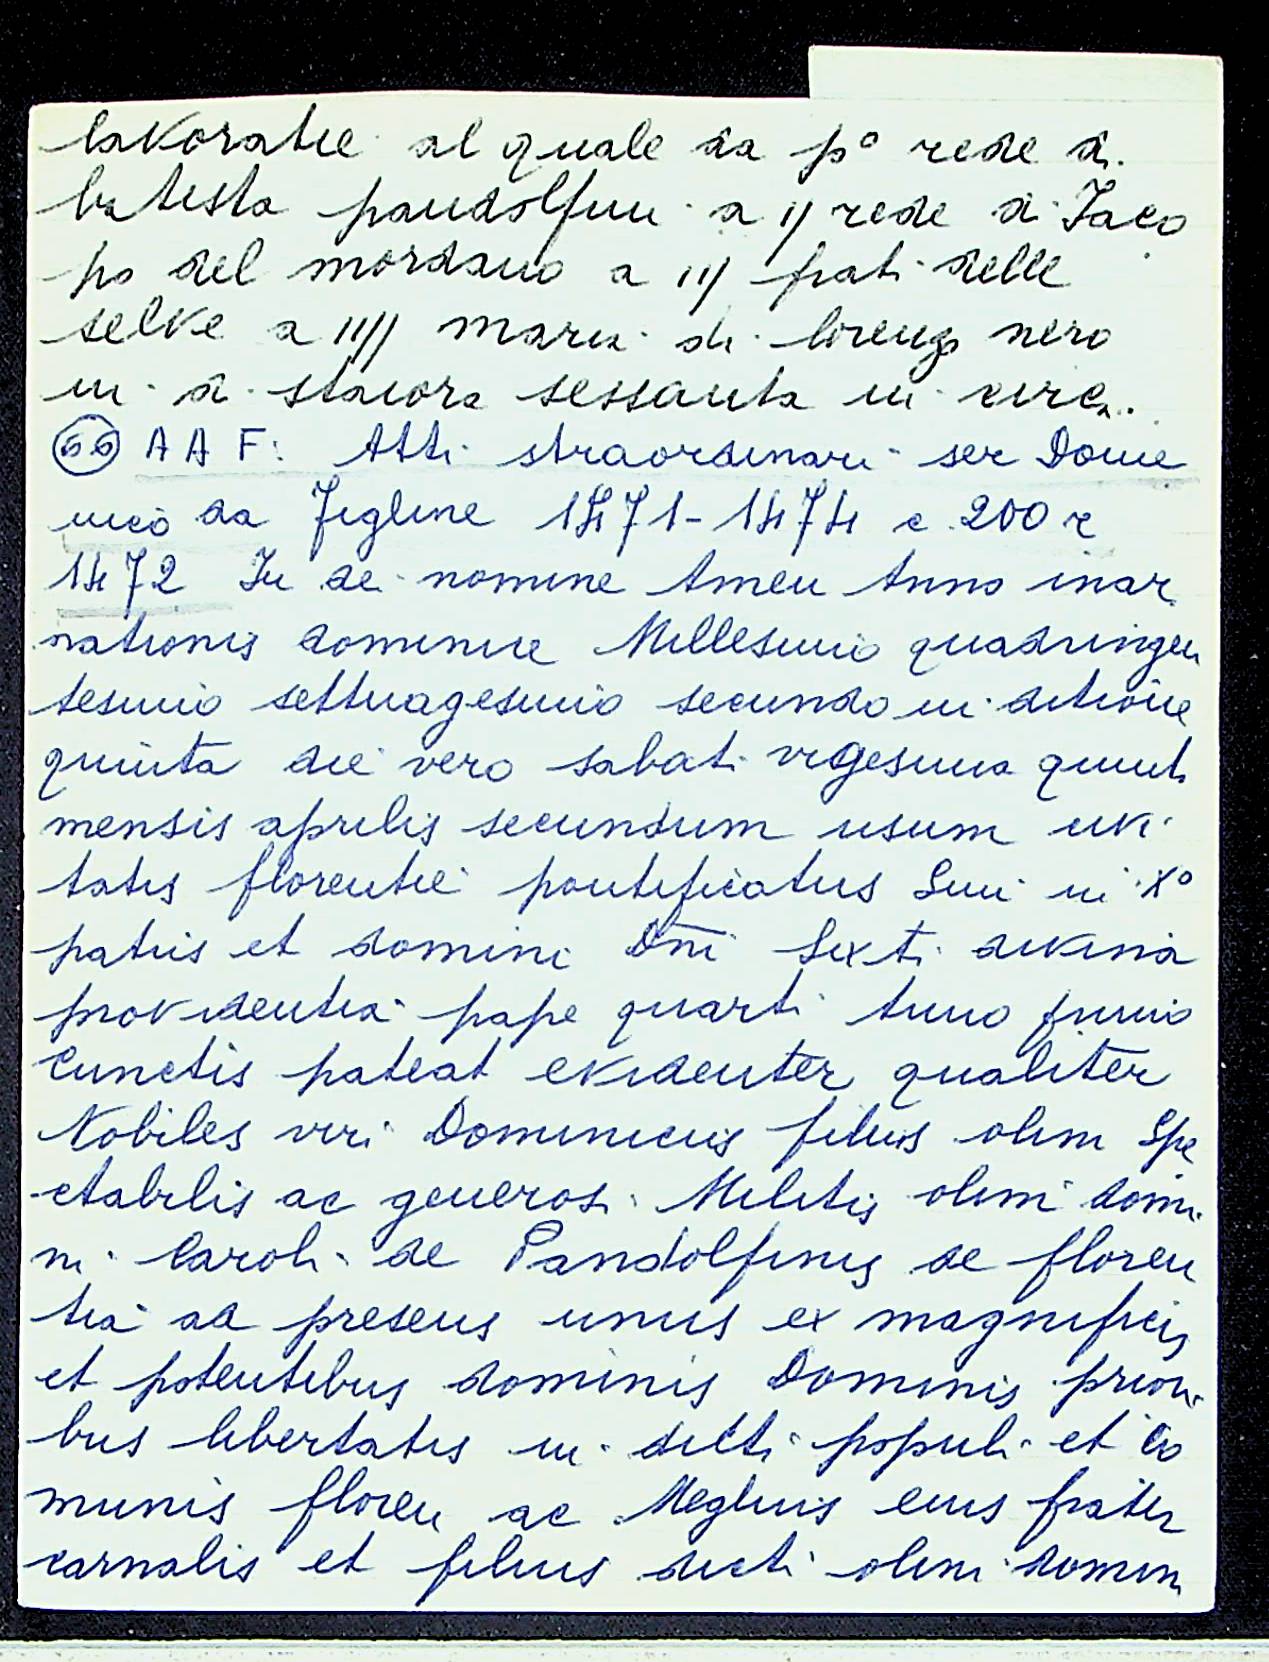 lavoratie al quale da p° rede di
batista pandolfini a 11/ rede di Jaco
po del mordano a 111/ frati delle
selve a 1111/ maria di lorenzo nero
in di staiora sessanta in circa.
66 A A F: Atti straordinari ser Dome
nico da Figline 1471-1474 c 200 r
1472 In dei nomine Amen Anno incar
nationis dominice Millesimo quadringen
tesimo settuagesimo secundo inditione
quinta die vero sabati vigesima quinti
mensis aprilis secundum usum civi
tatis florentie pontificatus Smi in X°
patris et domini Dni Sixti divina
providentia pape quarti Anno primo
Cunctis pateat evidenter qualiter
Nobiles viri Dominicus filius olim Spe
ctabilis ac generosi Militis olim domi
ni Caroli de Pandolfinis de floren
tia ad presens unus ex magnificis
et potentibus dominis Dominis priori
bus libertatis in dicti populi et Co
munis floren ac Meglius eius frater
carnalis et filius dicti olim domini